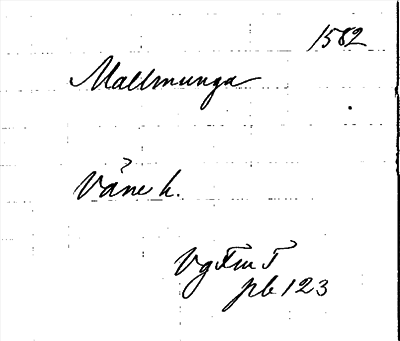 1582
Mallmunga
Väne h.
Vg Fm T
pb 123